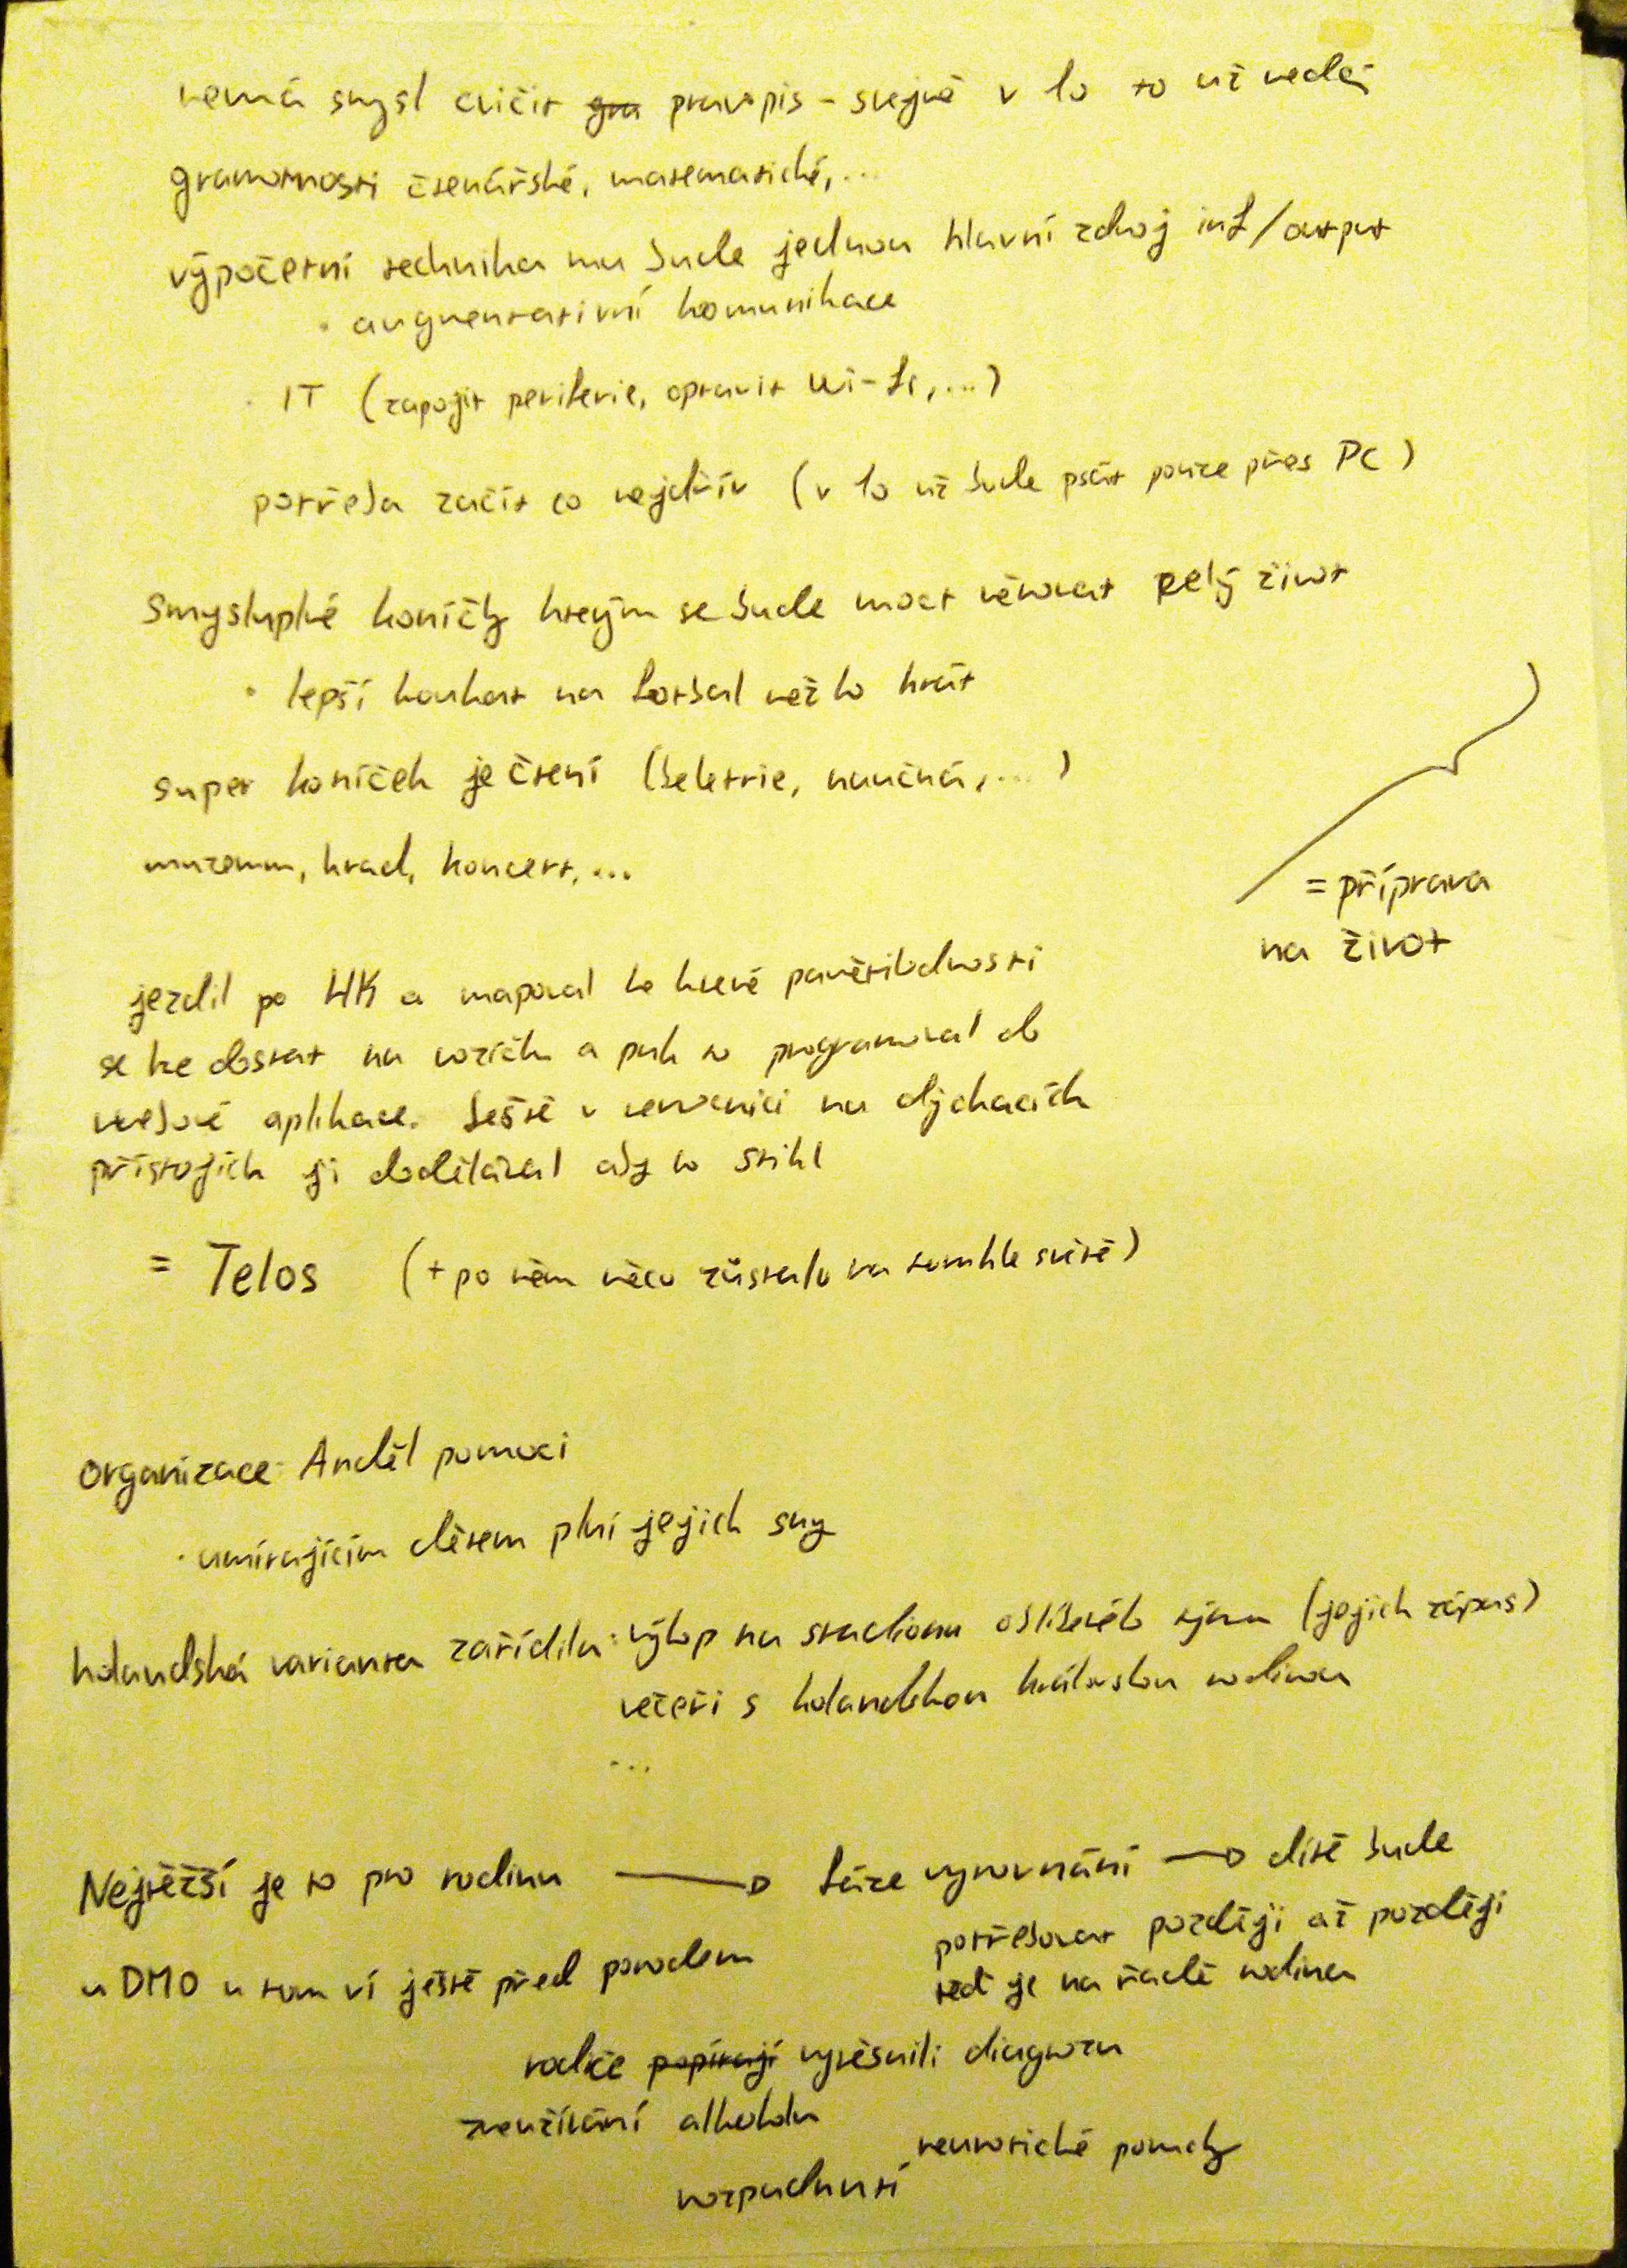 nemá smysl cvičit gra pravopis - stejně v 10 to už nedá
gramotnosti čtenářské, matematické,...
výpočetní technika mu bude jednou hlavní zdroj inf/output
· augmentativní komunikace
· IT (zapojit periferie, opravit wi-fi,...)
potřeba začít co nejdřív (v 10 už bude psát pouze přes PC)
Smysluplné koníčky kterým se bude moct věnovat celý život
· lepší koukat na fotbal než ho hrát
super koníček je čtení (beletrie, naučná,...)
muzeum, hrad, koncert,...
= příprava
na život
jezdil po HK a mapoval ke které pamětihodnosti
se lze dostat na vozíku a pak to programoval do
webové aplikace. Ještě v nemocnici na dýchacích
přístrojích ji dodělával aby to stihl
= Telos (+ po něm něco zůstalo na tomhle světě)
Organizace: Anděl pomoci
· umírajícím dětem plní jejich sny
holandská varianta zařídila: výkop na stadionu oblíbeného týmu (jejich zápas)
večeři s holandskou královskou rodinou
...
Nejtěžší je to pro rodinu → fáze vyrovnání → dítě bude
potřebovat později až později
teď je na řadě rodina
u DMO u tom ví ještě před porodem
rodiče popírají vytěsnili diagnozu
zneužívání alkoholu
neurotické pomcky
rozpadnutí